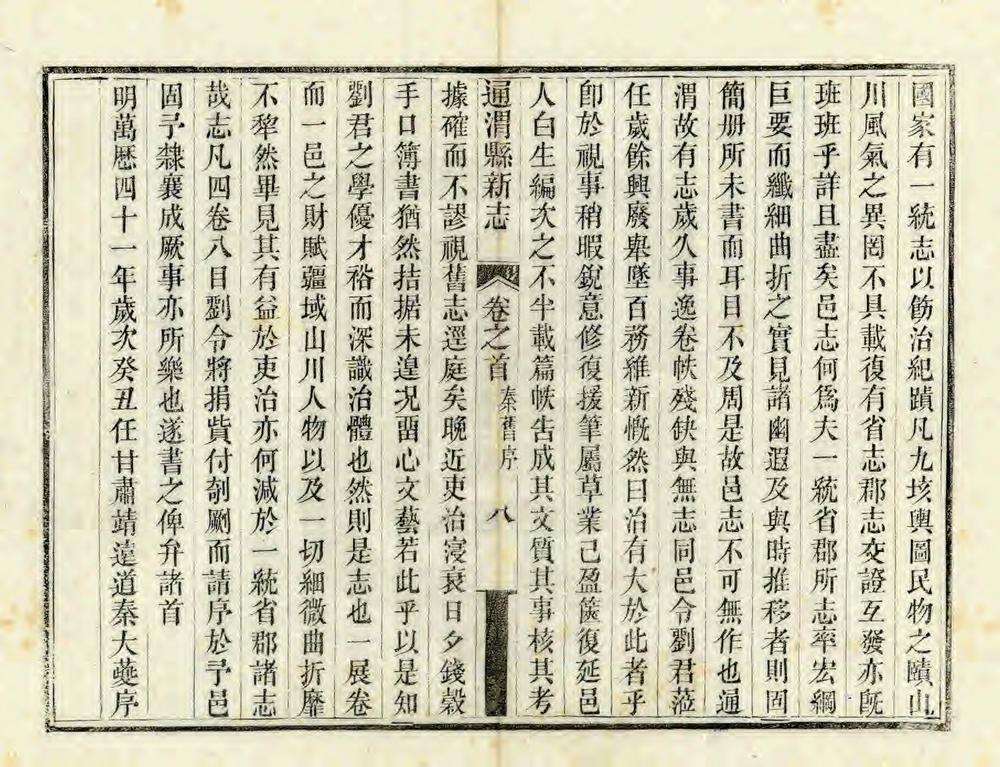 國家有一統志以飭治紀蹟凡九垓輿圖民物之賾山
川風氣之異罔不具載復有省志郡志交證互發亦旣
班班乎詳且盡矣邑志何爲夫一統省郡所志率宏綱
巨要而纖細曲折之實見諸幽遐及與時推移者則固
簡册所未書而耳目不及周是故邑志不可無作也通
渭故有志歲久事逸卷帙殘缺與無志同邑令劉君蒞
任歲餘興廢舉墜百務維新慨然曰治有大於此者乎
卽於視事稍暇銳意修復援筆屬草業已盈篋復延邑
人白生編次之不半載篇帙告成其文質其事核其考
通渭縣新志 卷之首 秦舊序 八
據確而不謬視舊志逕庭矣晚近吏治寖衰日夕錢穀
手口簿書猶然拮据未遑況畱心文藝若此乎以是知
劉君之學優才裕而深識治體也然則是志也一展卷
而一邑之財賦疆域山川人物以及一切細微曲折靡
不犂然畢見其有益於吏治亦何減於一統省郡諸志
哉志凡四卷八目劉令將捐貲付剞劂而請序於予邑
固予隸襄成厥事亦所樂也遂書之俾弁諸首
明萬歷四十一年歲次癸丑任甘肅靖遠道秦大夔序